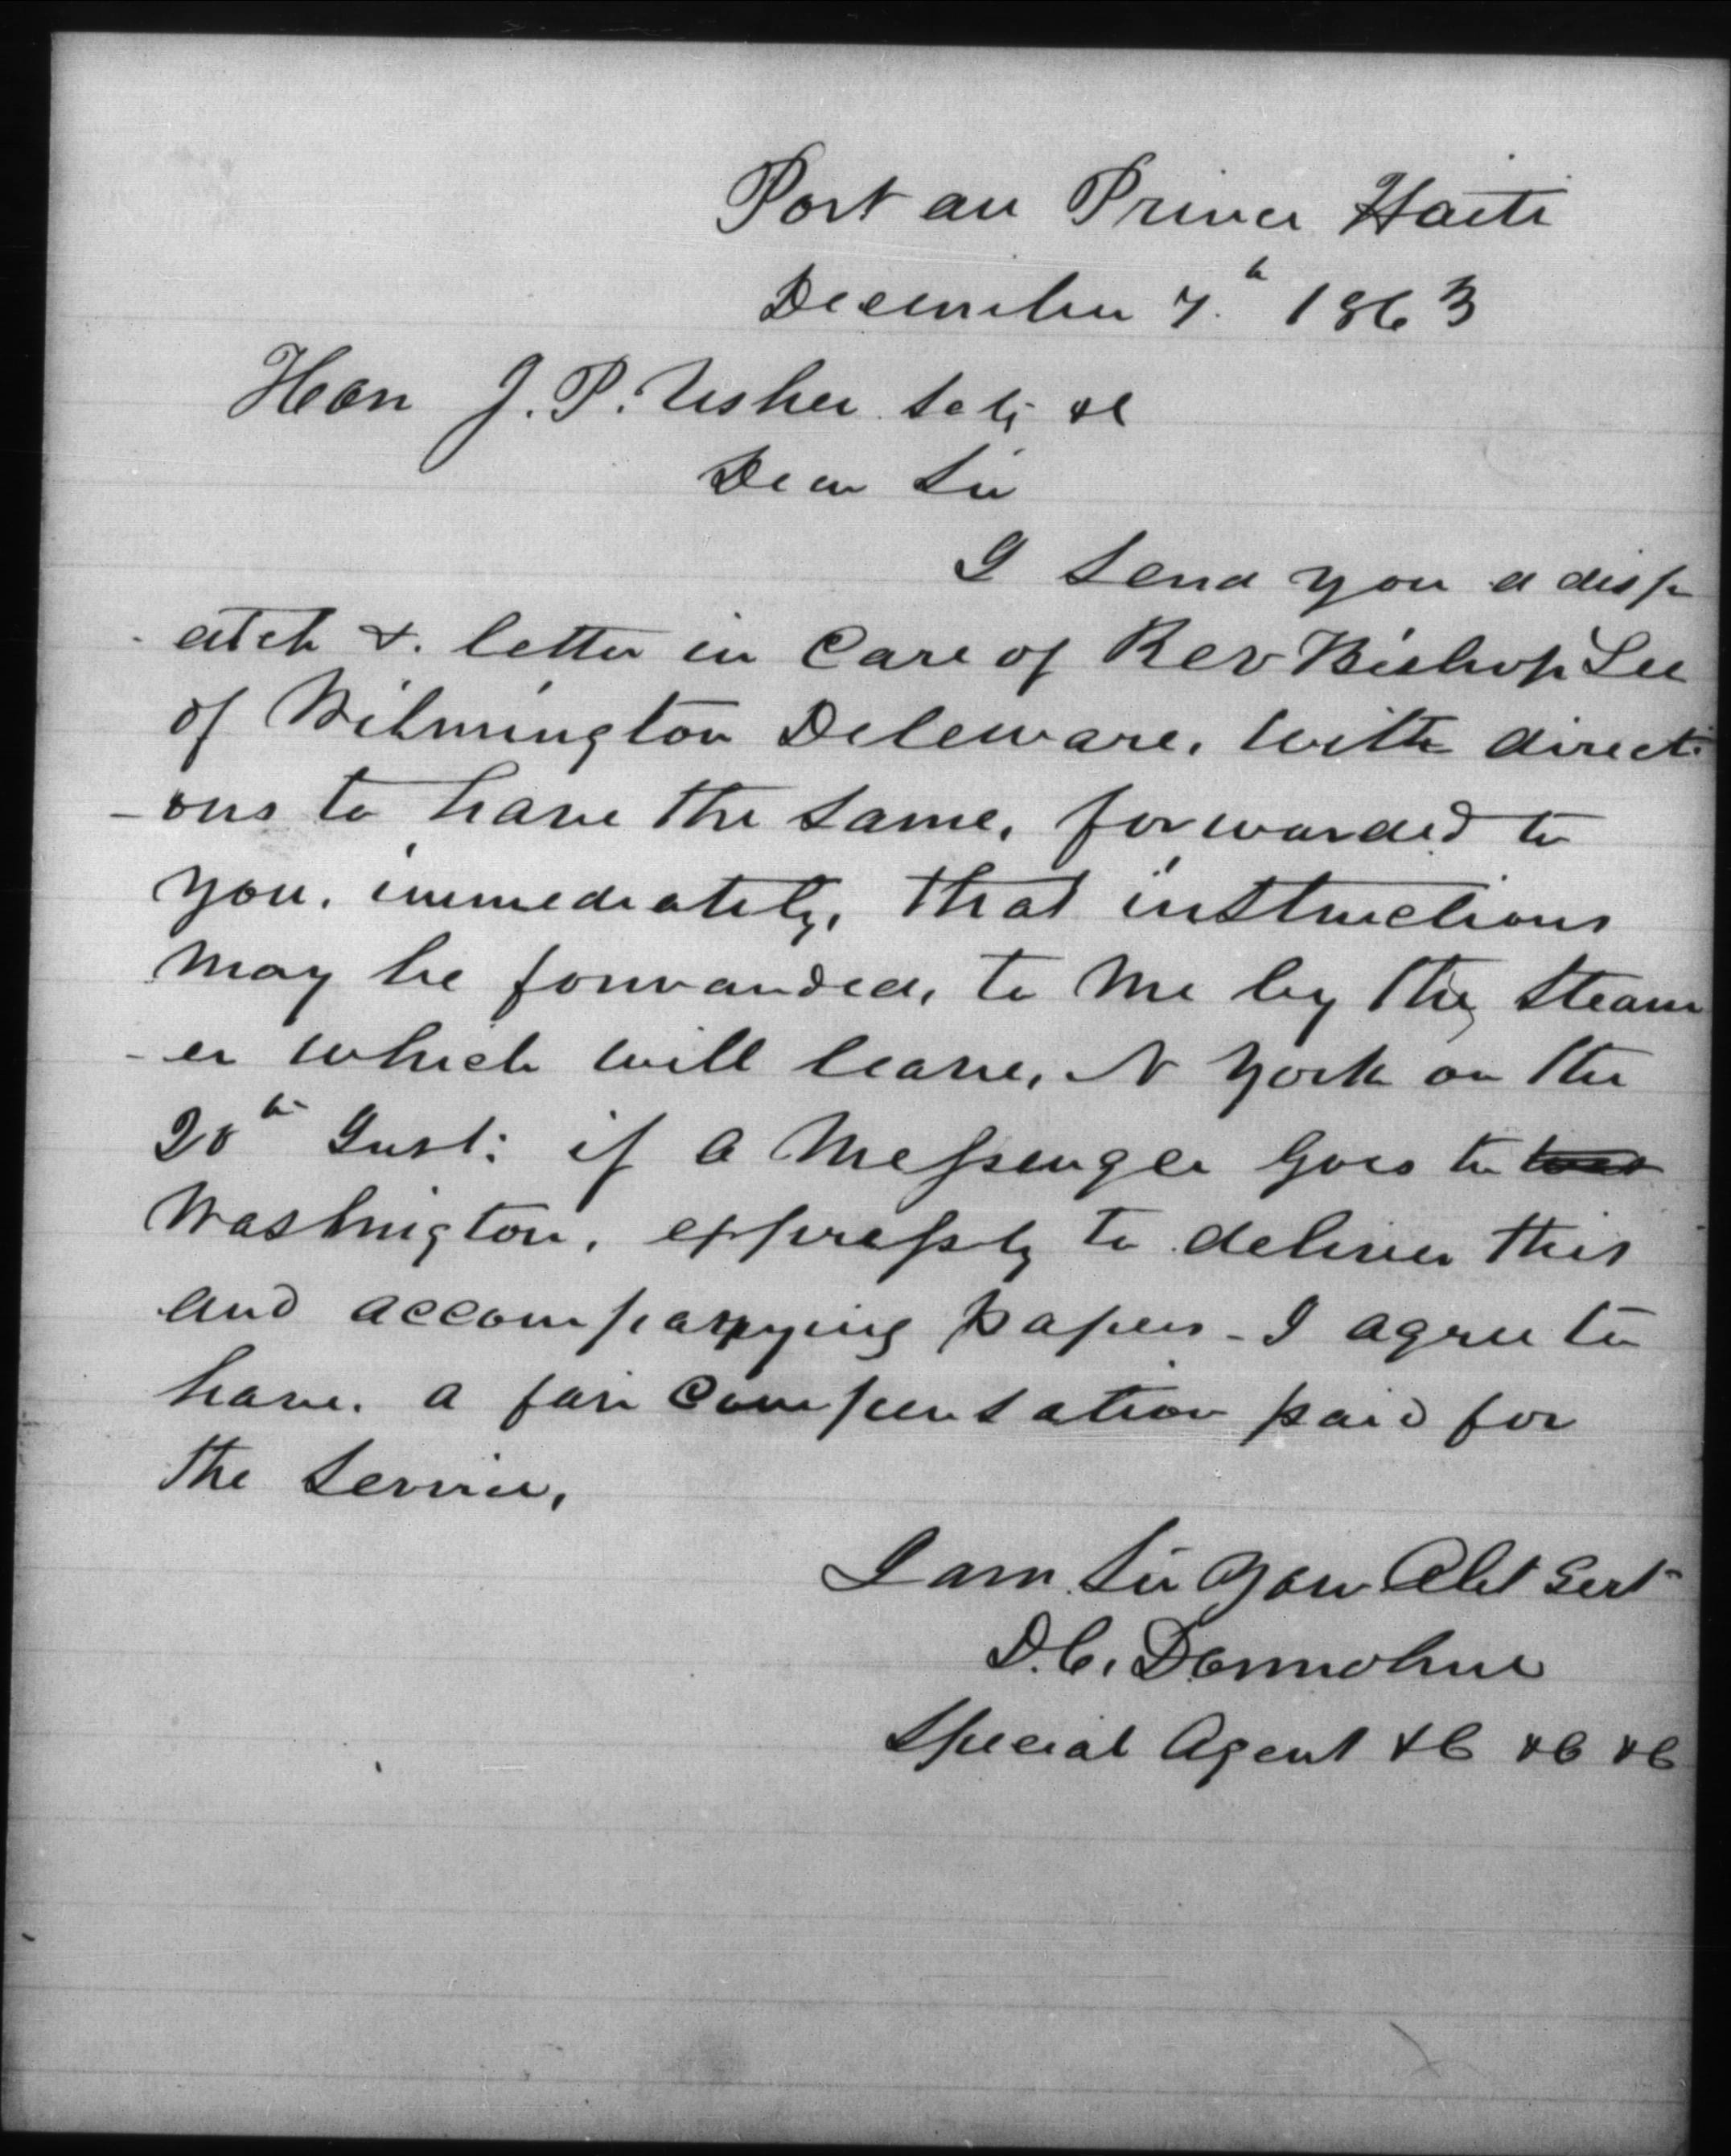 Port au Prince Haiti
December 7th 1863
Hon J. P. Usher Secty &c
Dear Sir
I send you a disp
atch &. letter in Care of Rev Bishop Lee
of Wilmington Deleware, with directi
-ons to have the same, forwarded to
you, immediately, that instructions
may be forwarded, to me by the steam
-er which will leave, N York on the
20th Inst: if a Messenger goes to
Washington, expressly to deliver this
and accompanying papers - I agree to
have. a fair Compensation paid for
the service,
I am Sir your Obt Sert
D. C. Donnohue
Special Agent &C &C &C